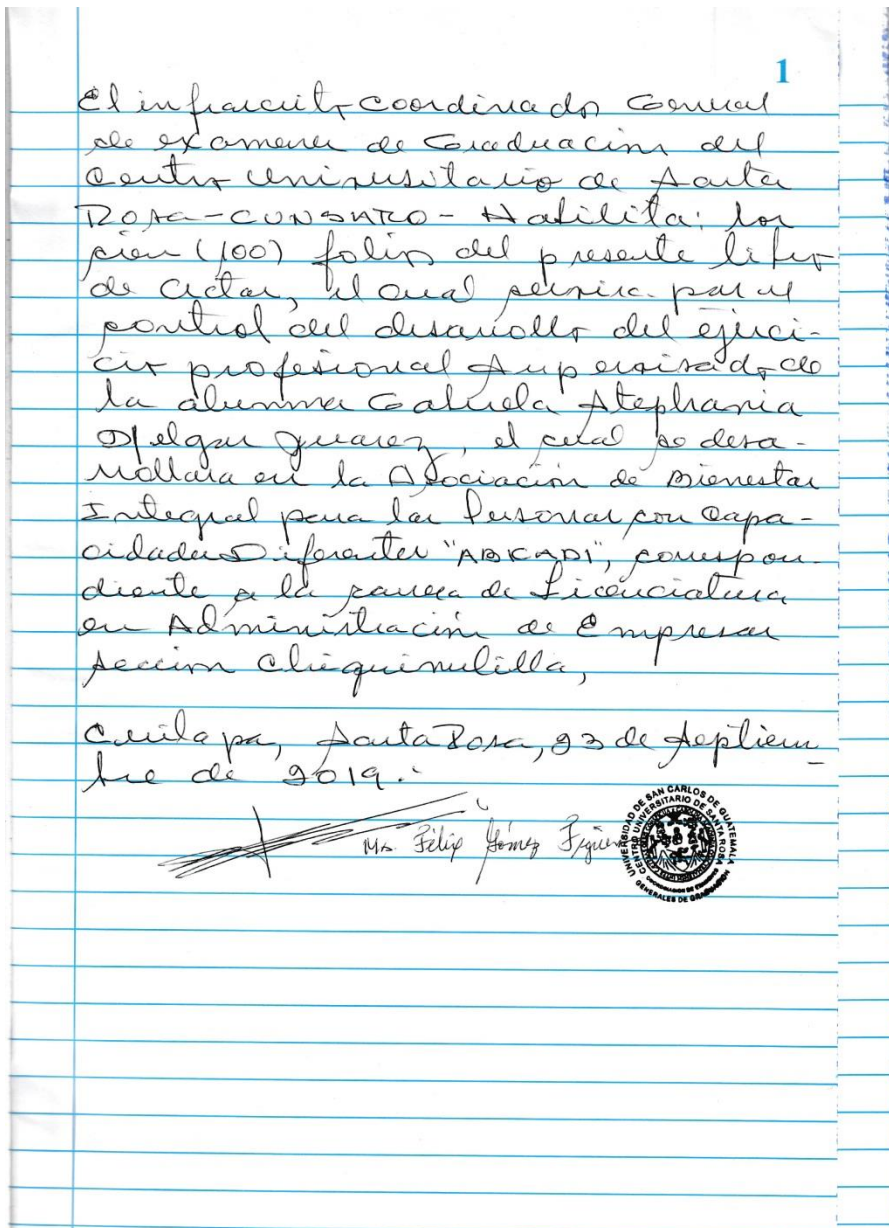 1
El infrascrito coordinador General
de examenes de Graduación del
Centro Universitario de Santa
Rosa-CUNSARO- Habilita: los
cien (100) folios del presente libro
de actas, el cual servira para el
control del desarrollo del ejerci-
cio profesional Supervisado de
la alumna Gabriela Stephania
Melgar Juarez, el cual se desa-
rrollara en la Asociación de Bienestar
Integral para las Personas con Capa-
cidades Diferentes "ABICADI", correspon-
diente a la carrera de Licenciatura
en Administración de Empresas
sección Chiquimulilla,
Cuilapa, Santa Rosa, 23 de septiem
bre de 2019.
Félix Gómez
UNIVERSIDAD DE SAN CARLOS DE GUATEMALA
CENTRO UNIVERSITARIO DE SANTA ROSA
COORDINADOR DE EXAMENES
GENERALES DE GRADUACION